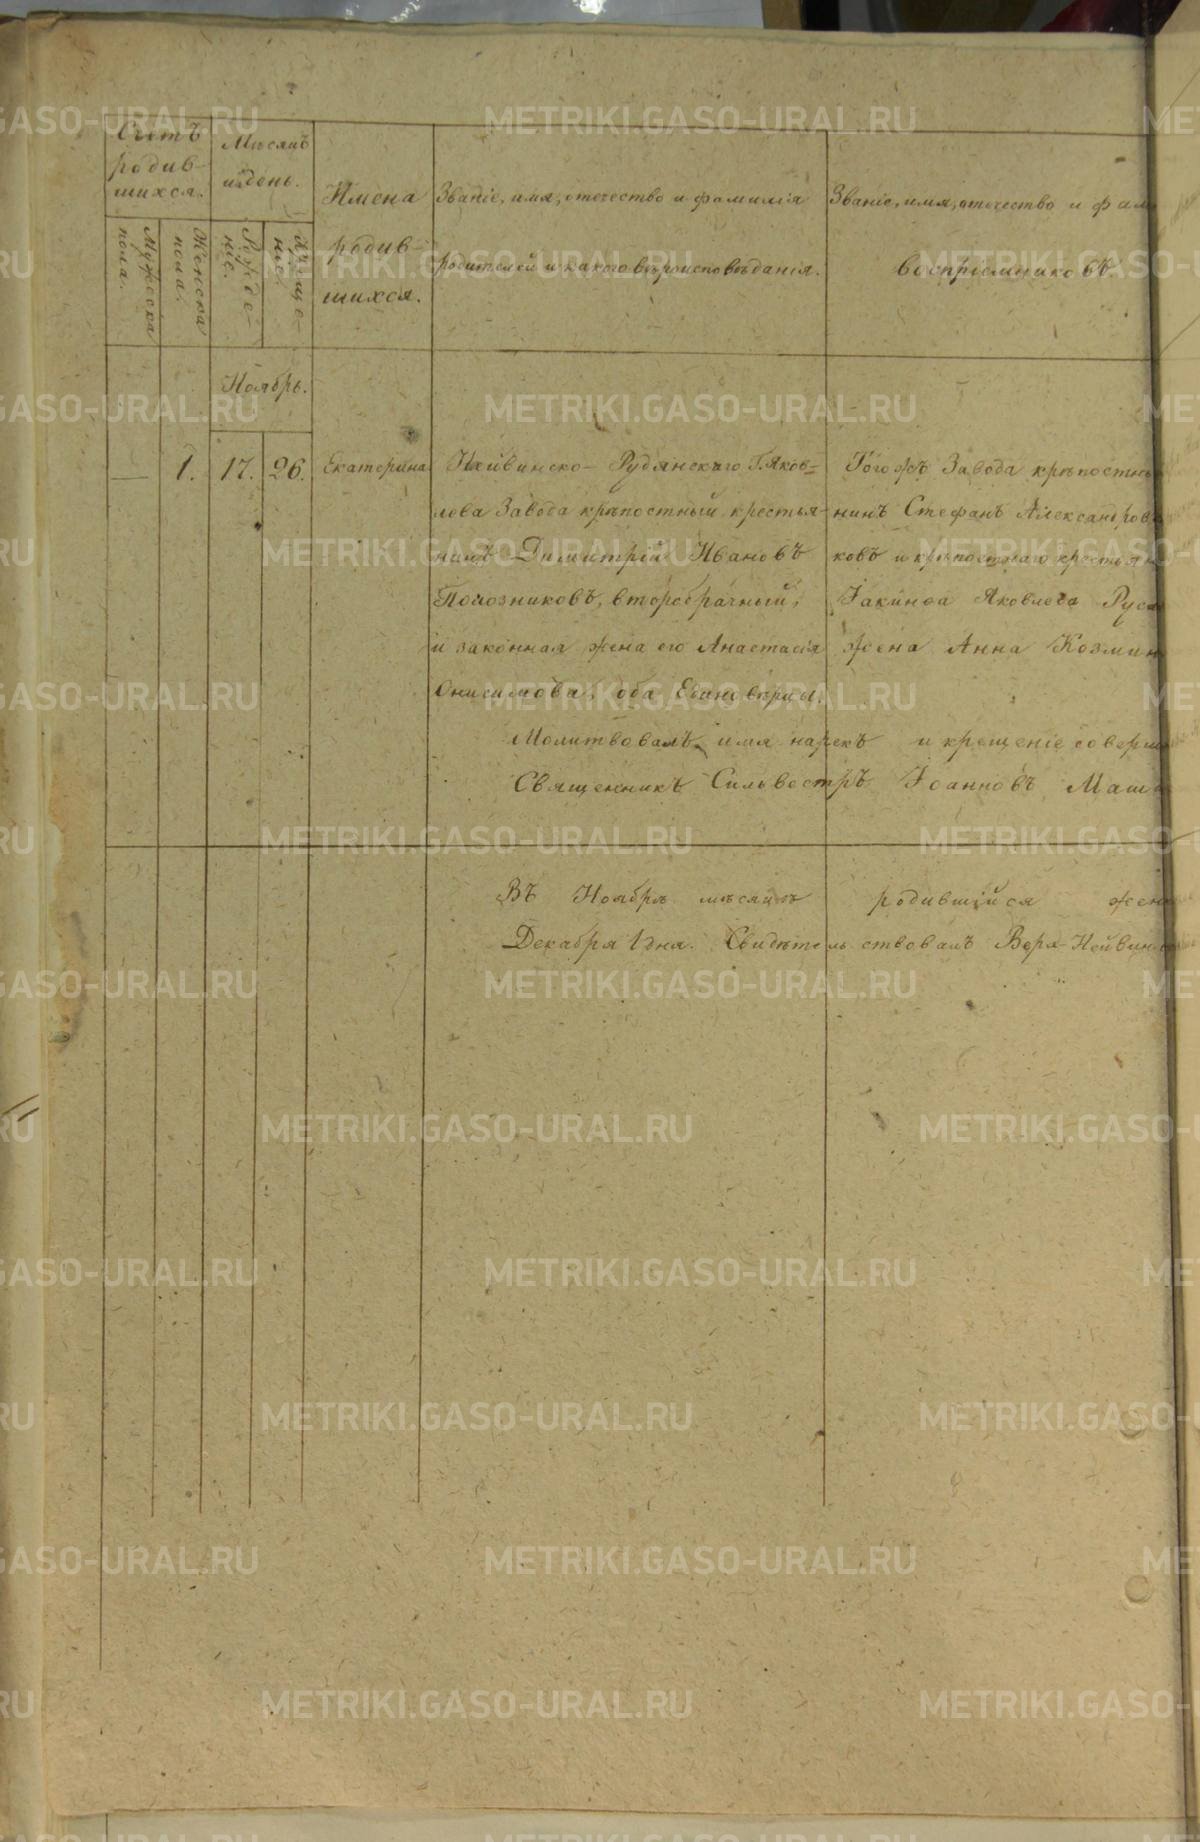 Счетъ
родив-
шихся.
Мужеска
пола.
Женска
пола.
Мѣсяцъ
и день.
Рожде-
ніе.
Креще-
ніе.
Имена
родив-
шихся.
Званіе, имя, отечество и фамилія
родителей и какого вѣроисповѣданія.
Званіе, имя, отечество и фам
воспріемниковъ.
Ноябрь.
— 1. 17. 26. Екатерина
Нейвинско-Рудянскаго Г. Яков=
лева Завода крѣпостный крестья-
нинъ Димитрій Ивановъ
второбрачный,
и законная жена его Анастасія
Онисимова, оба Единовѣрцы.
Того жъ Завода крѣпостны
нинъ Стефанъ Александров
ковъ и крѣпостнаго крестьян
Іакинѳа Яковлева Руса
жена Анна Козмин
Молитвовалъ, имя нарекъ и крещеніе соверш
Священникъ Сильвестръ Іоанновъ Маш
Въ Ноябрѣ мѣсяцѣ родившійся жен
Декабря 1 дня. Свидѣтельствовалъ Верх-Нейвин
METRIKI.GASO-URAL.RU